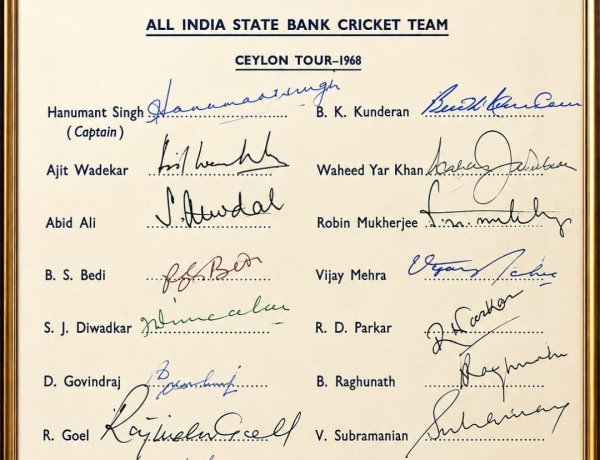 ALL INDIA STATE BANK CRICKET TEAM
CEYLON TOUR-1968
Hanumant Singh Hanumant Singh B. K. Kunderan
(Captain)
Ajit Wadekar Waheed Yar Khan
Abid Ali Robin Mukherjee
B. S. Bedi B S Bedi Vijay Mehra Vijay Mehra
S. J. Diwadkar R. D. Parkar
D. Govindraj B. Raghunath Raghunath
R. Goel Rajinder Goel V. Subramanian